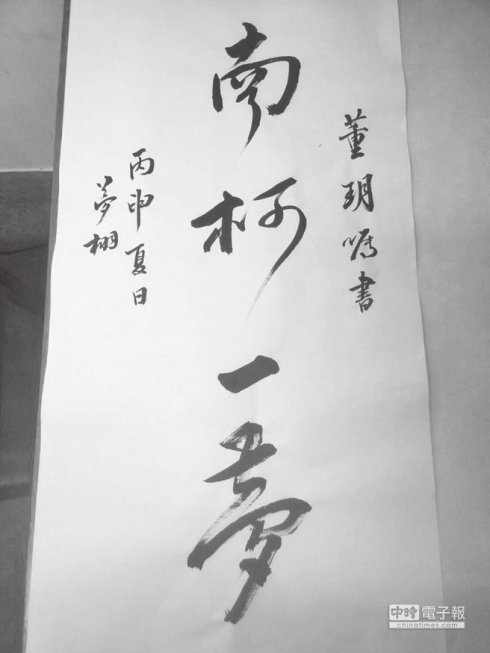 董玥囑書
南柯一夢
丙申夏日
夢栩
中時電子報
chinatimes.com